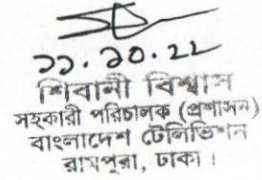 ২১.১০.২২
শিবানী বিশ্বাস
সহকারী পরিচালক (প্রশাসন)
বাংলাদেশ টেলিভিশন
রামপুরা, ঢাকা।